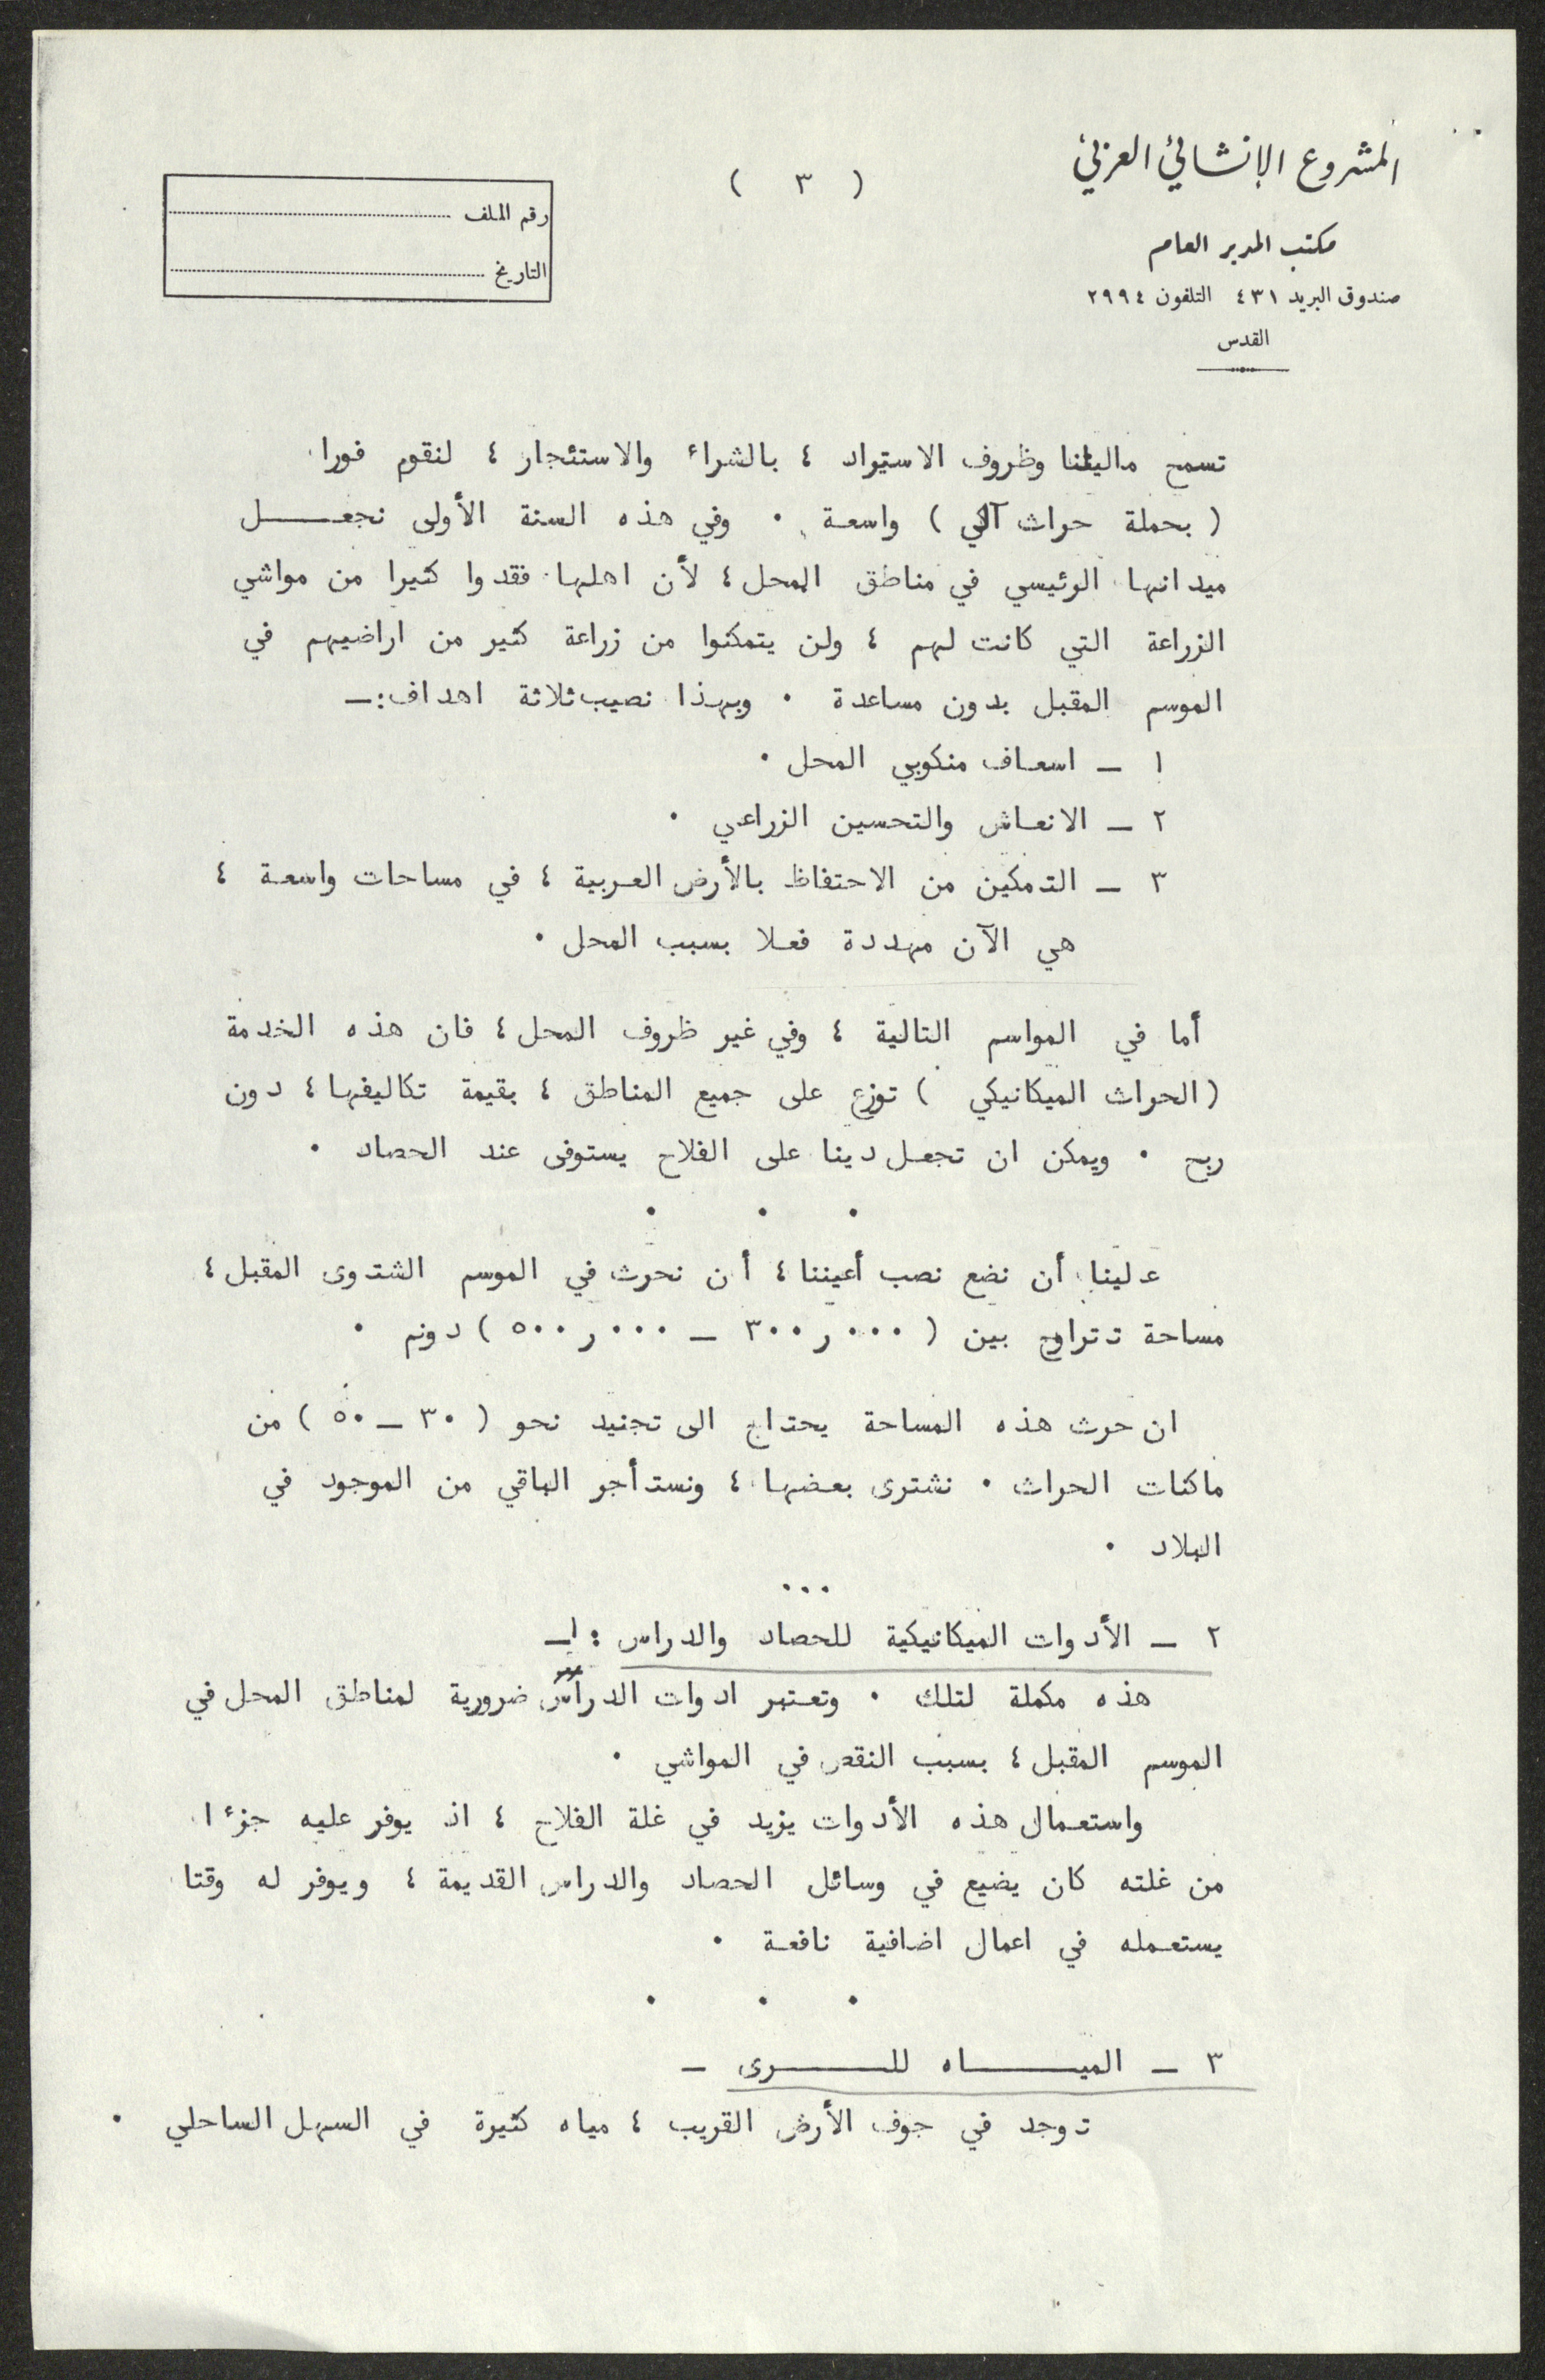 المشروع الإنشائي العربي
مكتب المدير العام
صندوق البريد ٤٣١ التلفون ٢٩٩٤
القدس
( ٣ )
رقم الملف
التاريخ
تسمح ماليتنا وظروف الاستيراد ، بالشراء والاستئجار ، لنقوم فورا
( بحملة حراث آلي ) واسعة . وفي هذه السنة الأولى نجعل
ميدانها الرئيسي في مناطق المحل ، لأن اهلها فقدوا كثيرا من مواشي
الزراعة التي كانت لهم ، ولن يتمكنوا من زراعة كثير من اراضيهم في
الموسم المقبل بدون مساعدة . وبهذا نصيب ثلاثة اهداف :ـ
١ ـ اسعاف منكوبي المحل .
٢ ـ الانعاش والتحسين الزراعي .
٣ ـ التمكين من الاحتفاظ بالأرض العربية ، في مساحات واسعة ،
هي الآن مهددة فعلا بسبب المحل .
أما في المواسم التالية ، وفي غير ظروف المحل ، فان هذه الخدمة
( الحراث الميكانيكي ) توزع على جميع المناطق ، بقيمة تكاليفها ، دون
ربح . ويمكن ان تجعل دينا على الفلاح يستوفى عند الحصاد .
. . .
علينا أن نضع نصب أعيننا ، أن نحرث في الموسم الشتوى المقبل ،
مساحة تتراوح بين ( ٣٠٠ر٠٠٠ ـ ٥٠٠ر٠٠٠ ) دونم .
ان حرث هذه المساحة يحتاج الى تجنيد نحو ( ٣٠ ـ ٥٠ ) من
ماكنات الحراث . نشترى بعضها ، ونستأجر الباقي من الموجود في
البلاد .
...
٢ ـ الأدوات الميكانيكية للحصاد والدراس :ـ
هذه مكملة لتلك . وتعتبر ادوات الدراس ضرورية لمناطق المحل في
الموسم المقبل ، بسبب النقص في المواشي .
واستعمال هذه الأدوات يزيد في غلة الفلاح ، اذ يوفر عليه جزءا
من غلته كان يضيع في وسائل الحصاد والدراس القديمة ، ويوفر له وقتا
يستعمله في اعمال اضافية نافعة .
. . .
٣ ـ الميـــاه للـــرى ـ
توجد في جوف الأرض القريب ، مياه كثيرة في السهل الساحلي .